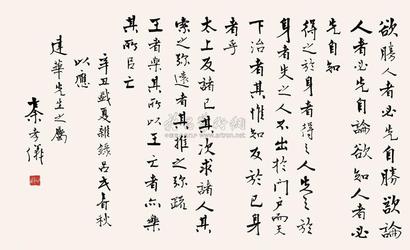 欲勝人者必先自勝欲論
人者必先自論欲知人者必
先自知
得之於身者得之人失之於
身者失之人不出於門戶而天
下治者其惟知反於己身
者乎
太上反諸己其次求諸人其
索之彌遠者其推之彌疏
王者樂其所以王亡者亦樂
其所以亡
辛丑歲夏雜錄呂氏春秋
以應
建華先生之屬
秦孝儀